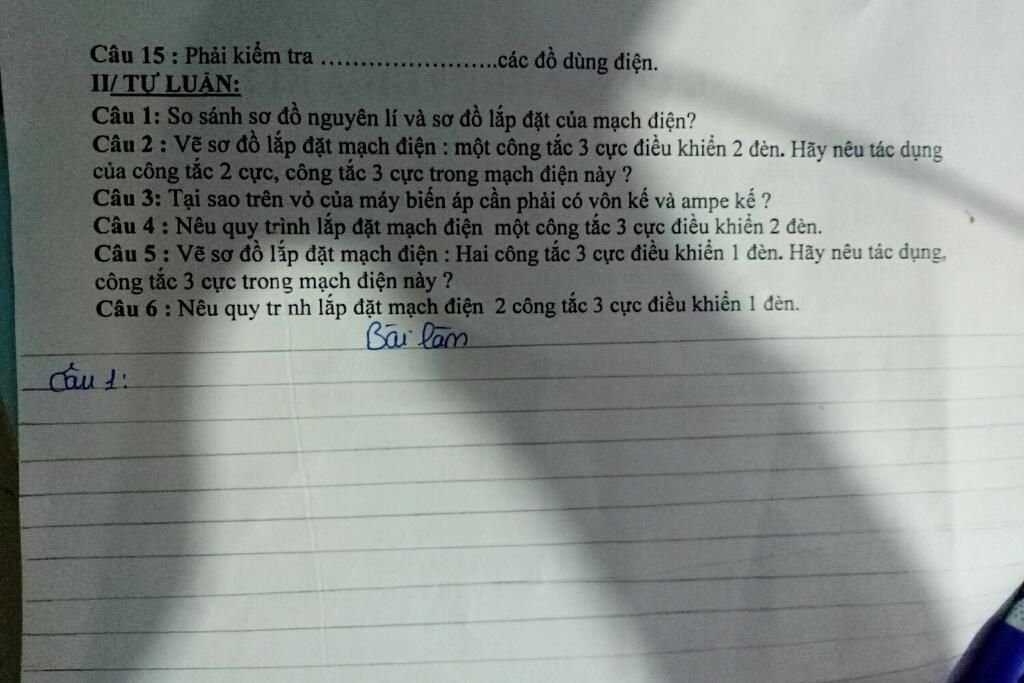 Câu 15 : Phải kiểm tra ........................các đồ dùng điện.
II/ TỰ LUẬN:
Câu 1: So sánh sơ đồ nguyên lí và sơ đồ lắp đặt của mạch điện?
Câu 2 : Vẽ sơ đồ lắp đặt mạch điện : một công tắc 3 cực điều khiển 2 đèn. Hãy nêu tác dụng
của công tắc 2 cực, công tắc 3 cực trong mạch điện này ?
Câu 3: Tại sao trên vỏ của máy biến áp cần phải có vôn kế và ampe kế ?
Câu 4 : Nêu quy trình lắp đặt mạch điện một công tắc 3 cực điều khiển 2 đèn.
Câu 5 : Vẽ sơ đồ lắp đặt mạch điện : Hai công tắc 3 cực điều khiển 1 đèn. Hãy nêu tác dụng,
công tắc 3 cực trong mạch điện này ?
Câu 6 : Nêu quy tr nh lắp đặt mạch điện 2 công tắc 3 cực điều khiển 1 đèn.
Bài làm
Câu 1: